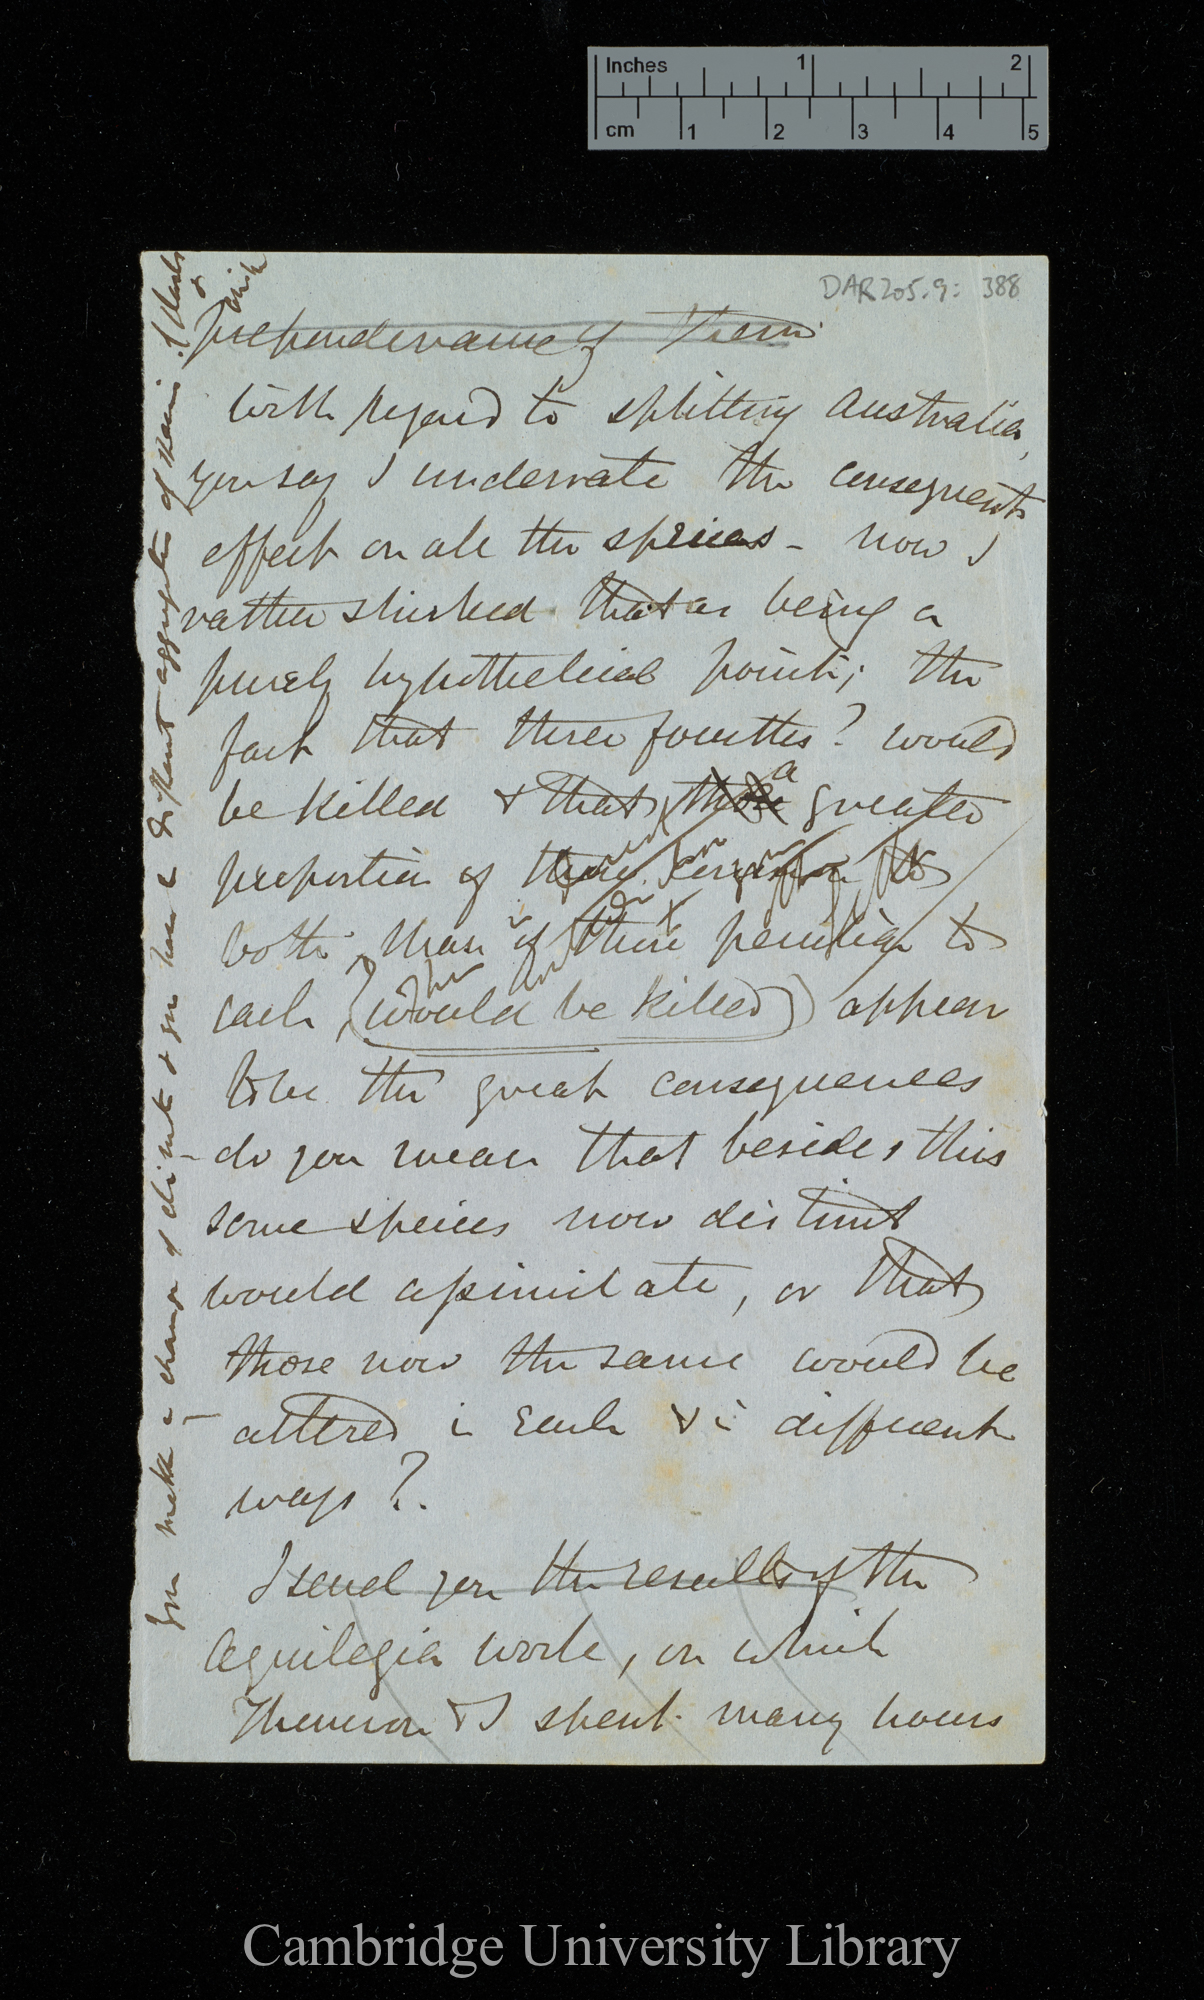 Inches 1 2
cm 1 2 3 4 5
DAR 205.9: 388
preponderance of them
With regard to splitting Australia,
you say I underrate the consequent
effect on all the species - now I
rather shirked that as being a
purely hypothetical point; the
fact that three fourths? would
be killed & that a greater
proportion of
both, than if peculiar to
each, (would be killed) appear
to be the great consequences
- do you mean that besides this
some species now distinct
would assimilate, or that
those now the same would be
altered in each & in different
ways?.
I send you the results of the
Aquilegia work, on which
Thomson & I spent many hours
You make a change of climate & you have a different aggregation of
Cambridge University Library